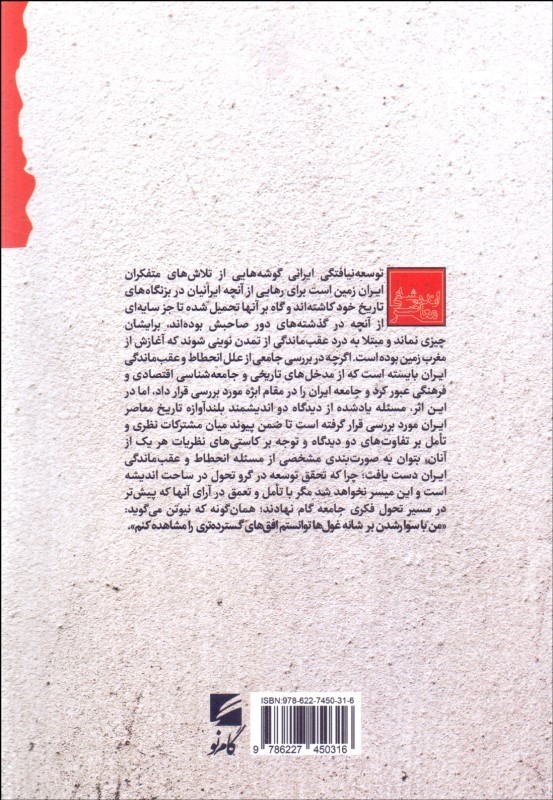 توسعه‌نیافتگی ایرانی گوشه‌هایی از تلاش‌های متفکران
ایران زمین است برای رهایی از آنچه ایرانیان در بزنگاه‌های
تاریخ خود کاشته‌اند و گاه بر آنها تحمیل شده تا جز سایه‌ای
از آنچه در گذشته‌های دور صاحبش بوده‌اند، برایشان
چیزی نماند و مبتلا به درد عقب‌ماندگی از تمدن نوینی شوند که آغازش از
مغرب زمین بوده است. اگرچه در بررسی جامعی از علل انحطاط و عقب‌ماندگی
ایران بایسته است که از مدخل‌های تاریخی و جامعه‌شناسی اقتصادی و
فرهنگی عبور کرد و جامعه ایران را در مقام ابژه مورد بررسی قرار داد، اما در
این اثر، مسئله یادشده از دیدگاه دو اندیشمند بلندآوازه تاریخ معاصر
ایران مورد بررسی قرار گرفته است تا ضمن پیوند میان مشترکات نظری و
تأمل بر تفاوت‌های دو دیدگاه و توجه بر کاستی‌های نظریات هر یک از
آنان، بتوان به صورت‌بندی مشخصی از مسئله انحطاط و عقب‌ماندگی
ایران دست یافت؛ چرا که تحقق توسعه در گرو تحول در ساحت اندیشه
است و این میسر نخواهد شد مگر با تأمل و تعمق در آرای آنها که پیش‌تر
در مسیر تحول فکری جامعه گام نهادند؛ همان‌گونه که نیوتن می‌گوید:
«من با سوار شدن بر شانه غول‌ها توانستم افق‌های گسترده‌تری را مشاهده کنم».
اندیشه
معاصر
ISBN:978-622-7450-31-6
9 786227 450316
گام نو